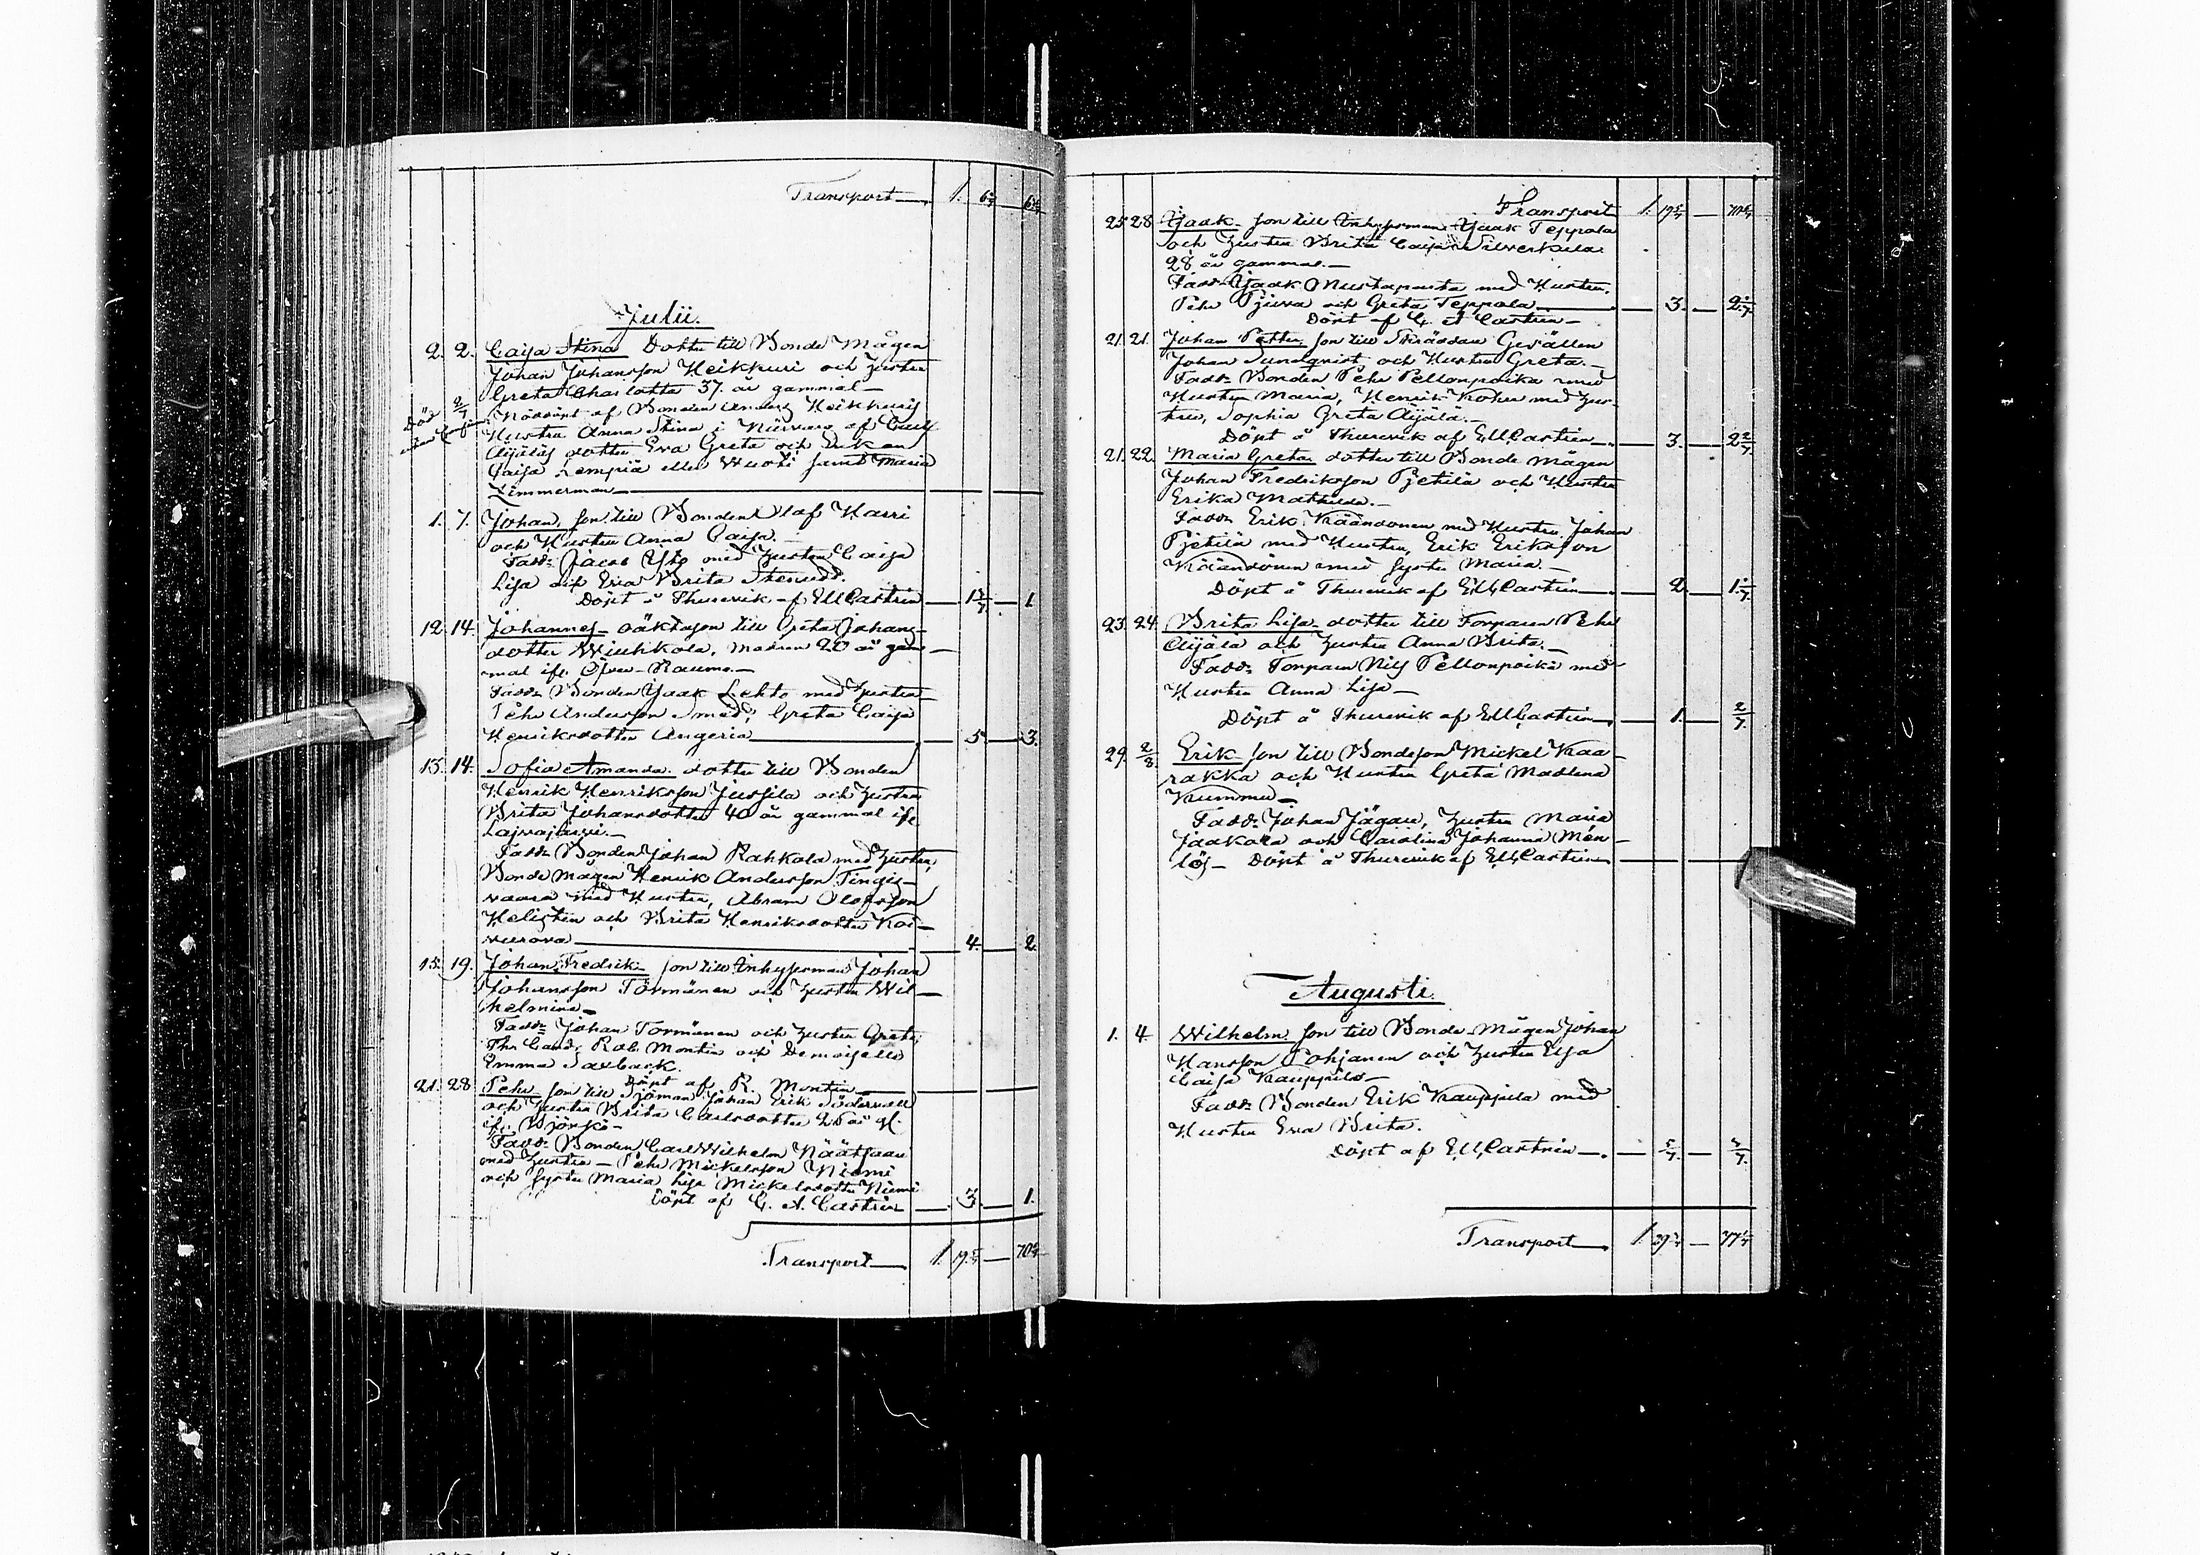 Transport 1.
Julii.
2. 2. Caija Stina Dotter till Bonde Mågen
Johan Johansson Heikkuri och Hustru
Greta Charlotta 37. år gammal
Död 2/7 Nöddöpt af Bonden Anders Heikkuris
Hustru Anna Stina i Närvaro af
Äijäläs dotter Eva Greta och
Caija Lempiä eller Wuoti samt Maria
Zimmerman
1. 7. Johan, son till Bonden Olof Harri
och Hustru Anna Caija.
Fadd: Jacob Ylö med Hustru Caija
Lisa och Eva Brita
Döpt å Thurevik af EM Castrén 1.
12. 14. Johannes oäkta son till Greta Johans
dotter Wiuhkola, modren 20 år gam
mal ifr. Öfver-Rauma.
Fadd: Bonden Isaac Lehto med Hustru
Pehr Andersson Smed, Greta Caija
Henriksdotter Angeria 5 3.
15. 14. Sofia Amanda dotter till Bonden
Henrik Henriksson Jussila och Hustru
Brita Johansdotter 40 år gammal ifr.
Lajvajärvi.
Fadd: Bonden Johan Rahkola med Hustru,
Bonde Mågen Henrik Andersson Tingis
vaara med Hustru, Abram Olofsson
Helistén och Brita Henriksdotter Koi
vurova 4. 2.
15. 19. Johan Fredrik son till Inhysesman Johan
Johansson Törmänen och Hustru Wil
helmina
Fadd: Johan Törmänen och Hustru Greta,
Th. Cand. Rob. Montin och Demoiselle
Emma
Döpt af R. Montin
21. 28. Pehr son till Sjöman Johan Erik Södervall
och Hustru Brita Carlsdotter 25 år gl.
if. Björkö
Fadd: Bonden Carl Wilhelm Näätsaari
med Hustru Pehr Mickelsson Niemi
och syster Maria Lisa Mickelsdotter Niemi
Döpt af C. A. Castrén 3 1.
Transport 1.
Transport 1.
25 28 Isaak son till Inhysesman Isaak Teppola
och Hustru Brita Caija Silverkula
28 år gammal.
Fadd: Isaak Mustaparta med Hustru.
Pehr Pjuva och Greta Teppola 3.
Döpt af C. A Castrén
21. 21. Johan Petter son till Skräddare Gesällen
Johan Sundqvist och Hustru Greta.
Fadd: Bonden Pehr Pellonpoika med
Hustru Maria, Henrik Koher med Hus
tru, Sophia Greta Äijälä.
Döpt å Thurevik af EM Castrén 3. 2 2/7.
21. 22. Maria Greta dotter till Bonde Mågen
Johan Fredriksson Pjetilä och Hustru
Erika Mathilda.
Fadd: Erik Käändönen med Hustru Johan
Pjetilä med Hustru, Erik Eriksson
Käändönen med syster Maria.
Döpt å Thurevik af EM Castrén 2 1 1/7.
23. 24. Brita Lisa dotter till Torparen Pehr
Äijälä och Hustru Anna Brita.
Fadd: Torparen Nils Pellonpoika med
Hustru Anna Lisa
Döpt å Thurevik af EM Castrén 1. 2/7.
29. 2/8 Erik son till Bondeson Mickel Kaa
rakka och Hustru Greta Madlena
Krumma
Fadd: Johan Jägare, Hustru Maria
Jaakola och Carolina Johanna Mén
lös Döpt å Thurevik af EM Castrén
Augusti.
1. 4. Wilhelm son till Bonde Mågen Johan
Hansson Pohjanen och Hustru Elsa
Caisa Kauppila
Fadd: Bonden Erik Kauppila med
Hustru Eva Brita.
Döpt af EM Castrén
Transport 1.